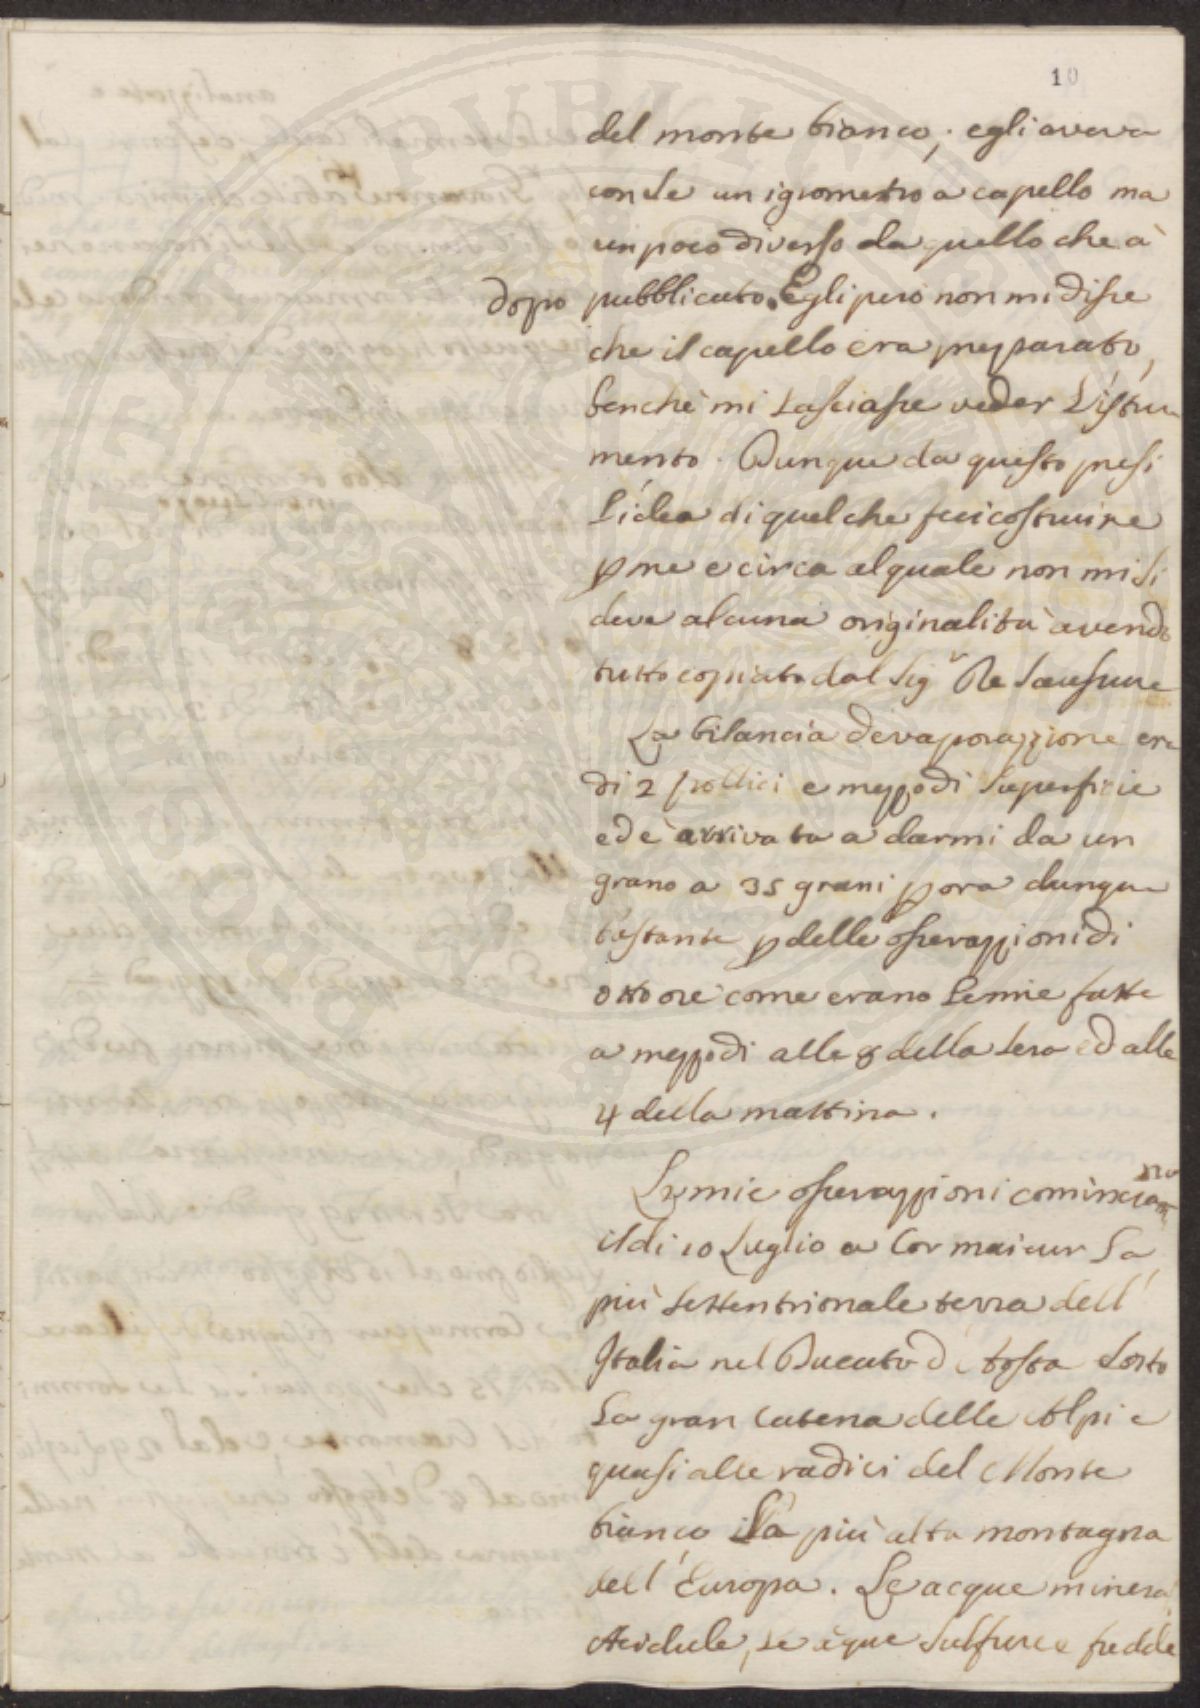 10
del monte bianco; egli aveva
con se un igrometro a capello ma
un poco diverso da quello che à
dopo pubblicato. Egli però non mi disse
che il capello era preparato,
benchè mi lasciasse veder L'istru
mento. Dunque da questo presi
L'idea di quel che feci costruire
p me e circa al quale non mi si
deve alcuna originalità avendo
tutto copiato dal Sigr De Saussure
La bilancia d'evaporazzione era
di 2 pollici e mezzo di superficie
ed è arrivata a darmi da un
grano a 35 grani p ora dunque
bastante p delle osservazzioni di
otto ore come erano le mie fatte
a mezzodi alle 8 della sera ed alle
4 della mattina.
Le mie osservazzioni cominciano
il di 10 Luglio a Cormaieur La
più settentrionale terra dell'
Italia nel Ducato d'Aosta sotto
La gran Catena delle Alpi e
quasi alle radici del Monte
bianco La più alta montagna
dell'Europa. Le acque minera
Acidule, le aque sulfuree fredde